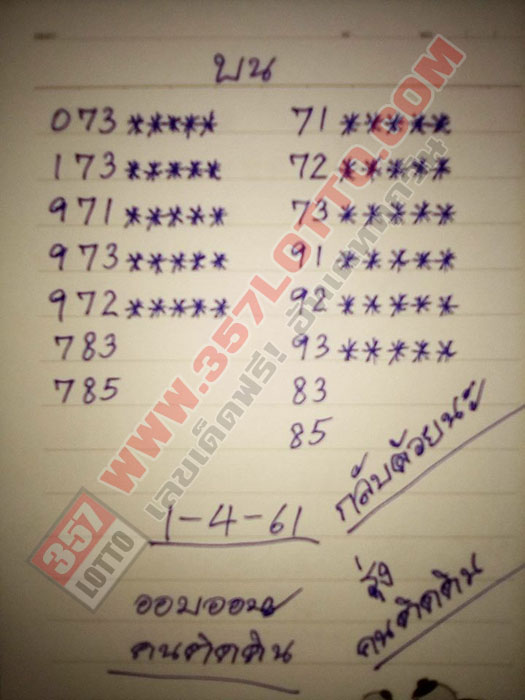 บน
073 ***** 71 *****
173 ***** 72 *****
971 ***** 73 *****
973 ***** 91 *****
972 ***** 92 *****
783 93 *****
785 83
85
กลับด้วยนะ
1-4-61
ออมออน
คนติดดิน
รุ่ง
คนติดดิน
WWW.357LOTTO.COM
เลขเด็ดฟรี! อัพเดททุกวัน
357
LOTTO